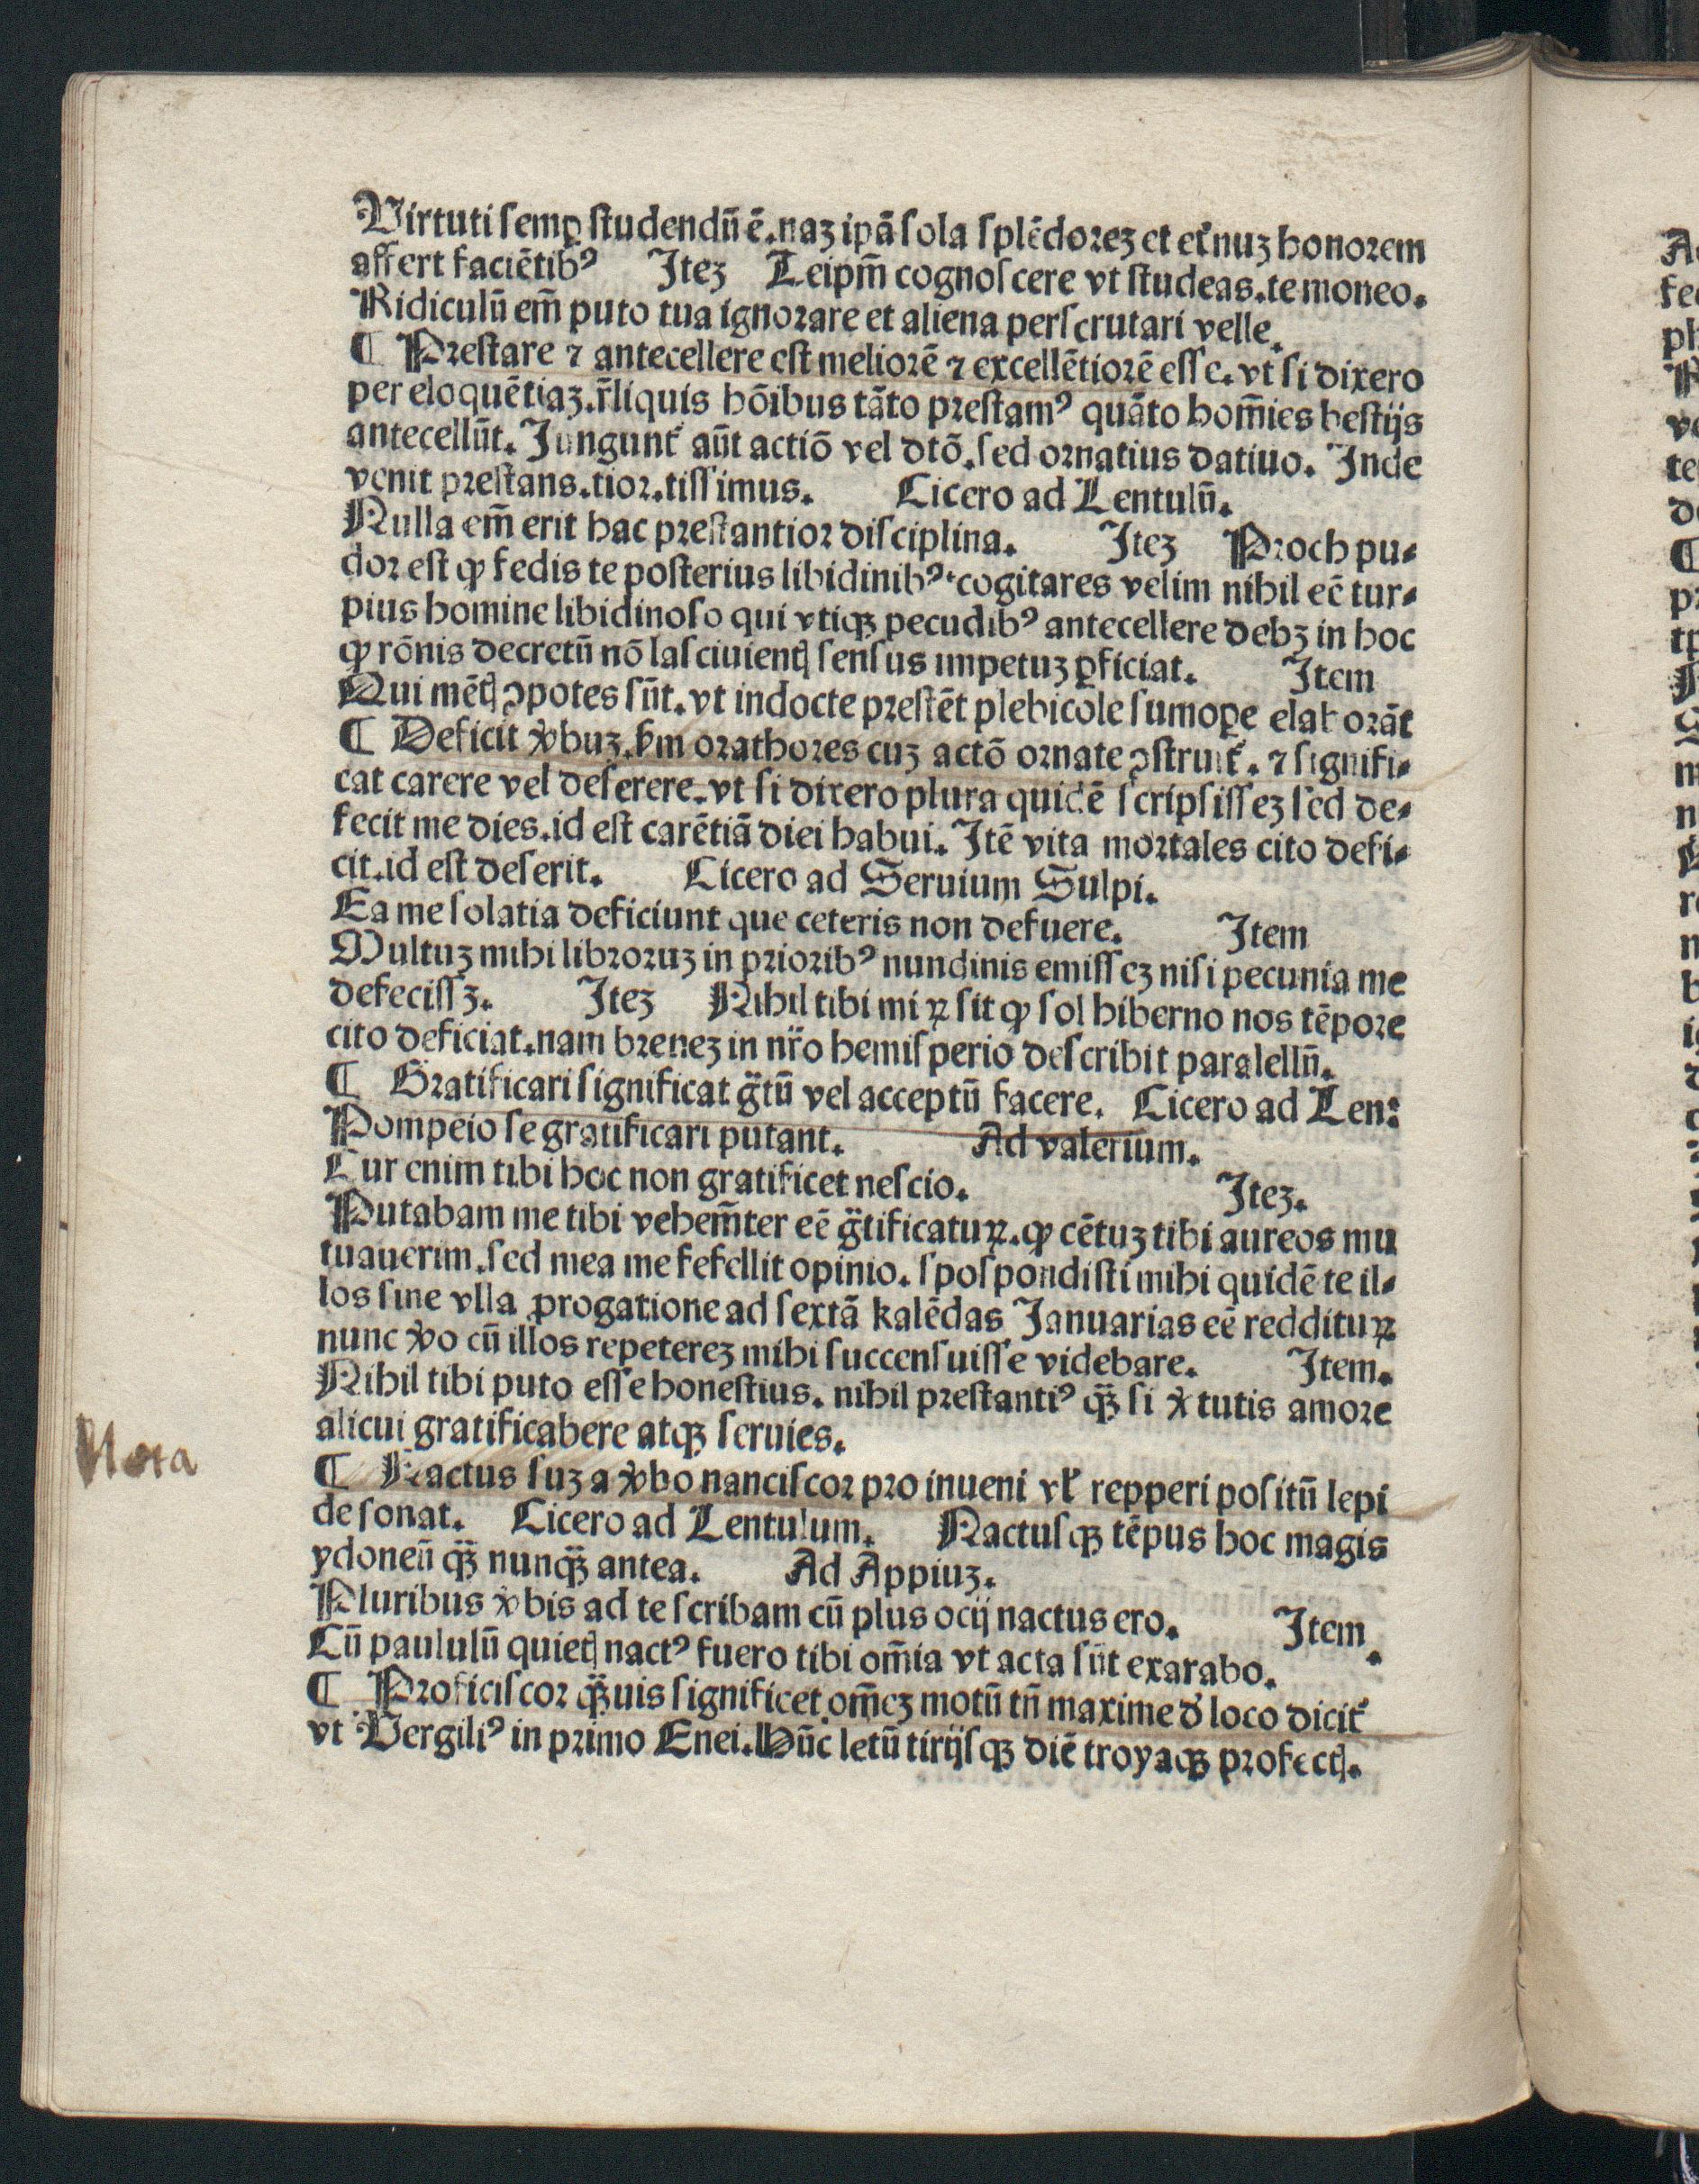 Virtuti semꝑ studendū ē.naꝫ ipā sola splēdoreꝫ et et̉nuꝫ honorem
affert faciētibꝰ Iteꝫ Teipm̄ cognoscere vt studeas.te moneo.
Ridiculū em̄ puto tua ignorare et aliena perscrutari velle.
¶ Prestare ⁊ antecellere est meliorē ⁊ excellētiorē esse.vt si dixero
per eloquētiaꝫ.r̄liquis hōibus tāto prestamꝰ quāto hom̄ies bestijs
antecellūt. Jungunt̉ aūt actiō vel dtō.sed ornatius datiuo. Inde
venit prestans.tior.tissimus. Cicero ad Lentulū.
Nulla em̄ erit hac prestantior disciplina. Iteꝫ Proch pu⸗
dor est ꝙ fedis te posterius libidinibꝰ cogitares velim nihil eē tur⸗
pius homine libidinoso qui vtiqꝫ pecudibꝰ antecellere debꝫ in hoc
ꝙ rōnis decretū nō lasciuientꝭ sensus impetuꝫ ꝑficiat. Item
Qui mētꝭ ꝯpotes sūt.vt indocte prestēt plebicole sumoꝑe elaborāt
¶ Deficit v̉buꝫ.ẜm orathores cuꝫ actō ornate ꝯstruit̉. ⁊ signifi⸗
cat carere vel deserere.vt si dixero plura quidē scripsisseꝫ sed de⸗
fecit me dies.id est carētiā diei habui. Itē vita mortales cito defi⸗
cit.id est deserit. Cicero ad Seruium Sulpi.
Ea me solatia deficiunt que ceteris non defuere. Item
Multuꝫ mihi libroruꝫ in prioribꝰ nundinis emisseꝫ nisi pecunia me
defecissꝫ. Iteꝫ Nihil tibi miꝝ sit ꝙ sol hiberno nos tēpore
cito deficiat.nam breueꝫ in nr̄o hemisperio describit paralellū.
¶ Gratificari significat gᷓtū vel acceptū facere. Cicero ad Len:
Pompeio se gratificari putant. Ad valerium.
Cur enim tibi hoc non gratificet nescio. Iteꝫ.
Putabam me tibi vehem̄ter eē gᷓtificatuꝝ.ꝙ cētuꝫ tibi aureos mu
tuauerim.sed mea me fefellit opinio. spospondisti mihi quidē te il⸗
los sine vlla ꝓrogatione ad sextā kalēdas Januarias eē reddituꝝ
nunc v̉o cū illos repetereꝫ mihi succensuisse videbare. Item.
Nihil tibi puto esse honestius. nihil prestantiꝰ qᷓꝫ si v̉tutis amore
alicui gratificabere atqꝫ seruies.
Nota
¶ Nactus suꝫ a v̉bo nanciscor pro inueni vł repperi positū lepi
de sonat. Cicero ad Lentulum. Nactusqꝫ tēpus hoc magis
ydoneū qᷓꝫ nunqᷓꝫ antea. Ad Appiuꝫ.
Pluribus v̉bis ad te scribam cū plus ocij nactus ero. Item.
Cū paululū quietꝭ nactꝰ fuero tibi om̄ia vt acta sūt exarabo.
¶ Proficiscor qᷓꝫuis significet om̄eꝫ motū tn̄ maxime đ loco dicit̉
vt Vergiliꝰ in primo Enei.Hūc letū tirijsqꝫ diē troyaqꝫ profectꝭ.